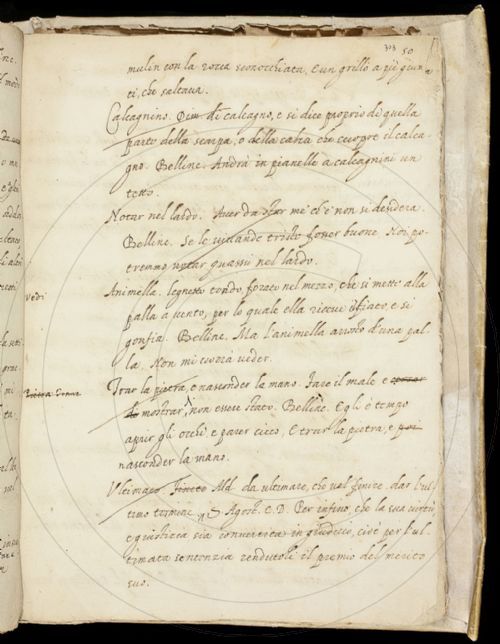 303 50
mulin con la rocca sconocchiata, E un grillo a piè giun
ti, che saltava.
Calcagnino. Dim di calcagno, e si dice proprio di quella
parte della scarpa, o della calza che cuopre il calca-
gno. Belline. Andrà in pianelle a calcagnini un
Notar nel lardo. Aver da star me ch'e' non si desidera.
Belline. Se le vivande fosser buone. Noi po-
tremmo notar quassù nel lardo.
Vedi
Animella. legnetto tondo, forato nel mezzo, che si mette alla
palla a vento, per lo quale ella riceve il fiato, e si
gonfia. Belline. Ma l'animella d'una pal-
la. Non mi veder.
Trar la pietra, e nasconder la mano. Fare il male e
mostrar, non essere stato. Belline. Egli è tempo
aprir gli occhi e parer cieco, E trar la pietra, e poi
nasconder la mano.
Ultimare. Finire Add. da ultimare, che val finire. dar l'ul-
timo termine. S. Agost. C. D. Per infino, che la sua virtù
e giustizia sia convertita in giudicio, cioè per l'ul-
timata sentenzia rendutole il premio del merito
suo.